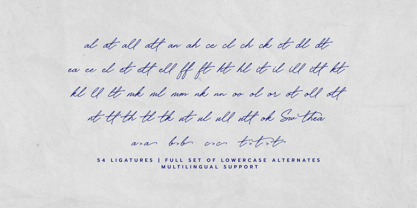 al at all att an ah ce cl ch ck ct dl dt
ea ee el et ett ell ff ft ht hl it il ill itt kt
kl ll lt mk ml mm nk nn oo ol or ot oll ott
rt tt th tl tk ut ul all utt ok Sw thea
a.a.a b.b.b c.c.c t.t.t.t.
54 LIGATURES | FULL SET OF LOWERCASE ALTERNATES
MULTILINGUAL SUPPORT